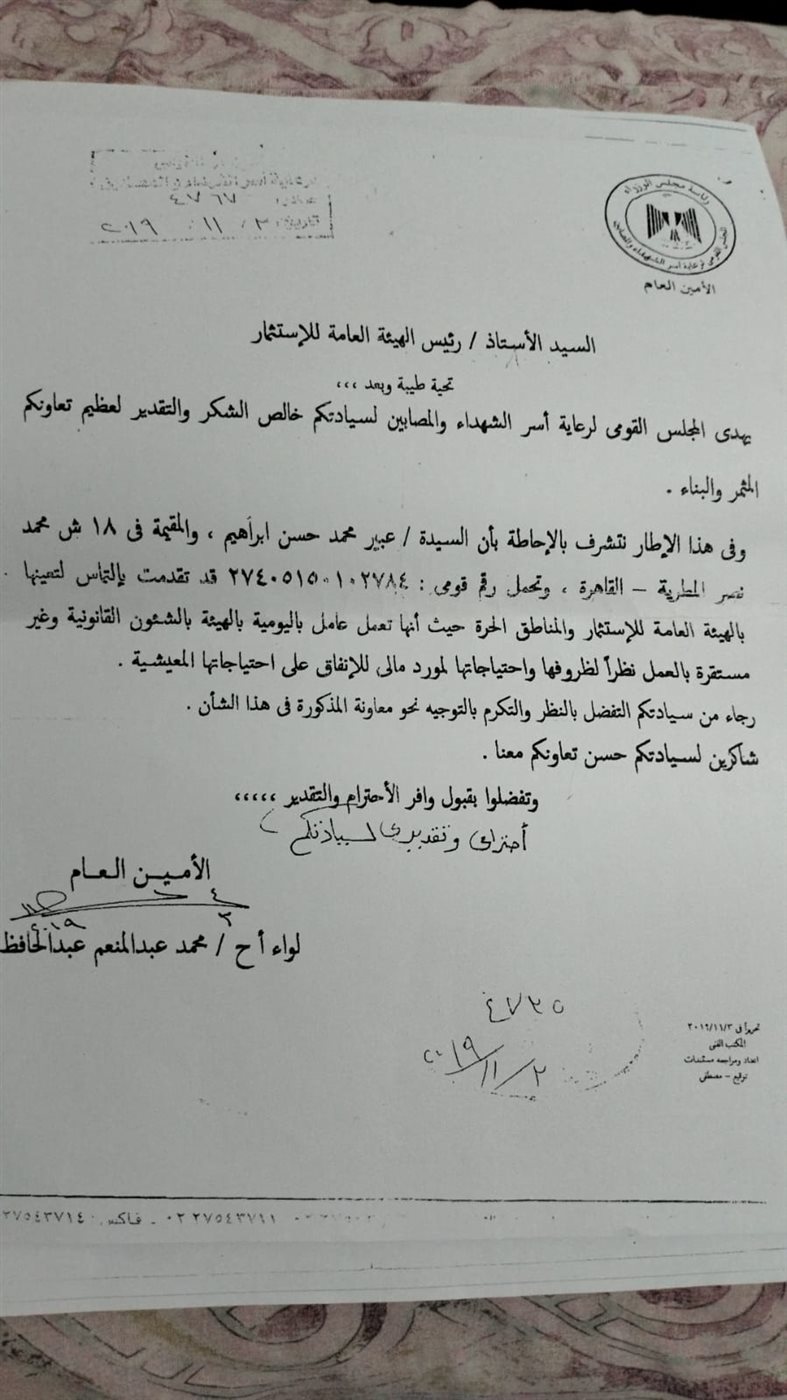 رئاسة مجلس الوزراء
المجلس القومى لرعاية أسر الشهداء والمصابين
الأمين العام
٤٧٦٧
تاريخ: ٣ ١١ ٢٠١٩
السيد الأستاذ / رئيس الهيئة العامة للإستثمار
تحية طيبة وبعد ،،،
يهدى المجلس القومى لرعاية أسر الشهداء والمصابين لسيادتكم خالص الشكر والتقدير لعظيم تعاونكم
المثمر والبناء .
وفى هذا الإطار نتشرف بالإحاطة بأن السيدة / عبير محمد حسن ابراهيم ، والمقيمة فى ١٨ ش محمد
نصر المطرية – القاهرة ، وتحمل رقم قومى : ٢٧٤٠٥١٥٠١٠٢٧٨٤ قد تقدمت بإلتماس لتعينها
بالهيئة العامة للإستثمار والمناطق الحرة حيث أنها تعمل عامل باليومية بالهيئة بالشئون القانونية وغير
مستقرة بالعمل نظراً لظروفها واحتياجاتها لمورد مالى للإنفاق على احتياجاتها المعيشية .
رجاء من سيادتكم التفضل بالنظر والتكرم بالتوجيه نحو معاونة المذكورة فى هذا الشأن .
شاكرين لسيادتكم حسن تعاونكم معنا .
وتفضلوا بقبول وافر الأحترام والتقدير ،،،،،
أحترامى وتقديرى لسيادتكم
الأمين العام
لواء أ ح / محمد عبدالمنعم عبدالحافظ
٤٧٣٥
٢٠١٩/١١/٢
تحريراً فى ٢٠١٩/١١/٣
المكتب الفنى
اعداد ومراجعه مستندات
توقيع – مصطفى
٠٢ ٢٧٥٤٣٧١١ ـ فاكس : ٢٧٥٤٣٧١٤